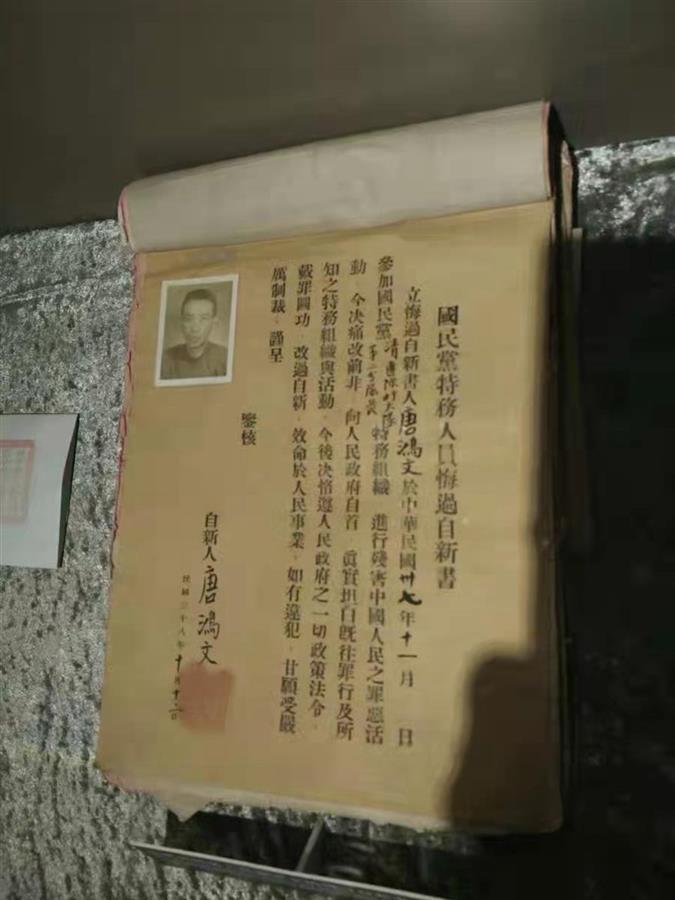 國民黨特務人員悔過自新書
立悔過自新書人唐鴻文於中華民國卅七年十一月　日
參加國民黨清特務組織　進行殘害中國人民之罪惡活
動．今决痛改前非．向人民政府自首．眞實坦白既往罪行及所
知之特務組織與活動．今後决恪遵人民政府之一切政策法令．
戴罪圖功．改過自新．效命於人民事業．如有違犯．甘願受嚴
厲制裁．謹呈
鑒核
自新人唐鴻文
民國三十八年十月十二日